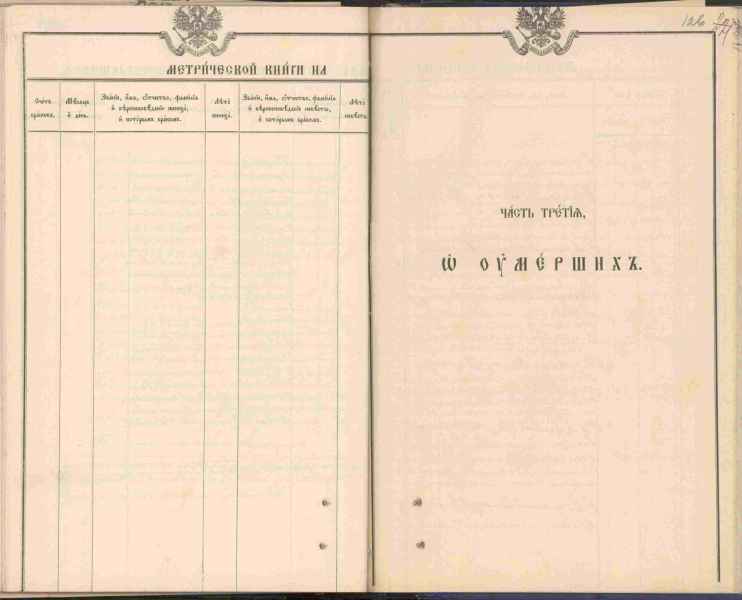 МЕТРИ́ЧЕСКОЙ КНИ́ГИ НА
Счетъ
бра́ковъ.
Мѣ́сяцъ
и҆ де́нь.
Зва́нїе, и҆́мѧ, ѻ҆́тчество, фами́лїѧ
и҆ вѣроисповѣ́данїе жениха̀,
и҆ кото́рымъ бра́комъ.
Лѣ́та
жениха̀.
Зва́нїе, и҆́мѧ, ѻ҆́тчество, фами́лїѧ
и҆ вѣроисповѣ́данїе невѣ́сты,
и҆ кото́рымъ бра́комъ.
Лѣ́та
невѣ́сты.
126
ЧА́СТЬ ТРЕ́ТЇѦ,
Ѡ҆ ОУ҆МЕ́РШИХЪ.